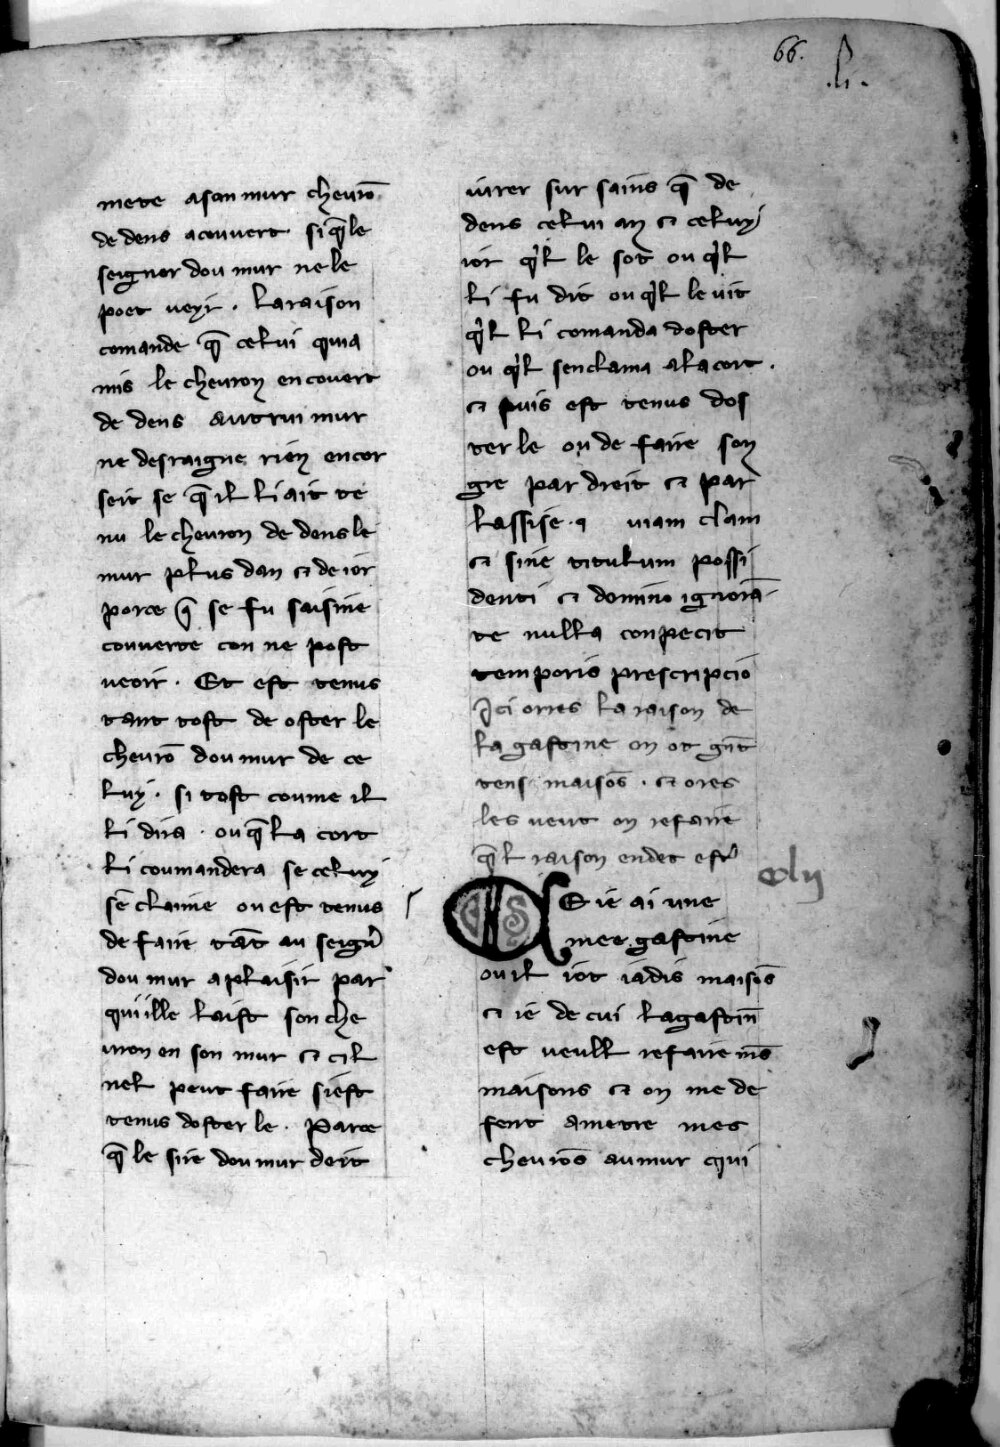 66.
.li.
mete a son mur cheuro̅
de dens a couuert. si q̅ le
seignor dou mur ne le
poet veyr. La raison
comande q̅ celui qui a
mis le cheuron en couert
de dens autrui mur
ne desraigne rien encor
seit se q̅ il li ait te
nu le cheuron de dens le
mur plus dan et de ior
por ce q̅ se fu saisine
couuerte con ne post
veoir. Et est tenus
tant tost de oster le
cheuro̅ dou mur de ce
luy. si tost coume il
li dira. ou q̅ la cort
li coumandera se celuy
se̅ claime ou est tenus
de faire ta̅t au seign̉
dou mur a plaisir par
qui ille laist son che
uron en son mur et cil
nel peut faire si est
tenus doster le. Par ce
q̅ le sire dou mur deit
iurer sur sains q̅ de
dens celui an et celuy
ior q̉l le sot ou q̉l
li fu dit ou q̉l le vit
q̉l li comanda doster
ou q̉l sen clama a la cort.
et puis est tenus dos
ter le ou de faire son
gre par dreit et par
lassise. viam clam
et sine titulum possi
denti et domino ignora̅
te nulla conpecit
temporis prescripcio
Ici orres la raison de
la gastine on ot gn̅t
tens maiso̅s. et ores
les veut on refaire
q̅l raison endet estr̉
clij
SE ie ai une
meе gastine
ou il iot iadis maiso̅s
et ie de cui la gastin̅
est veull refaire me̅s
maisons et on me de
fent a metre mes
cheuro̅s au mur qui